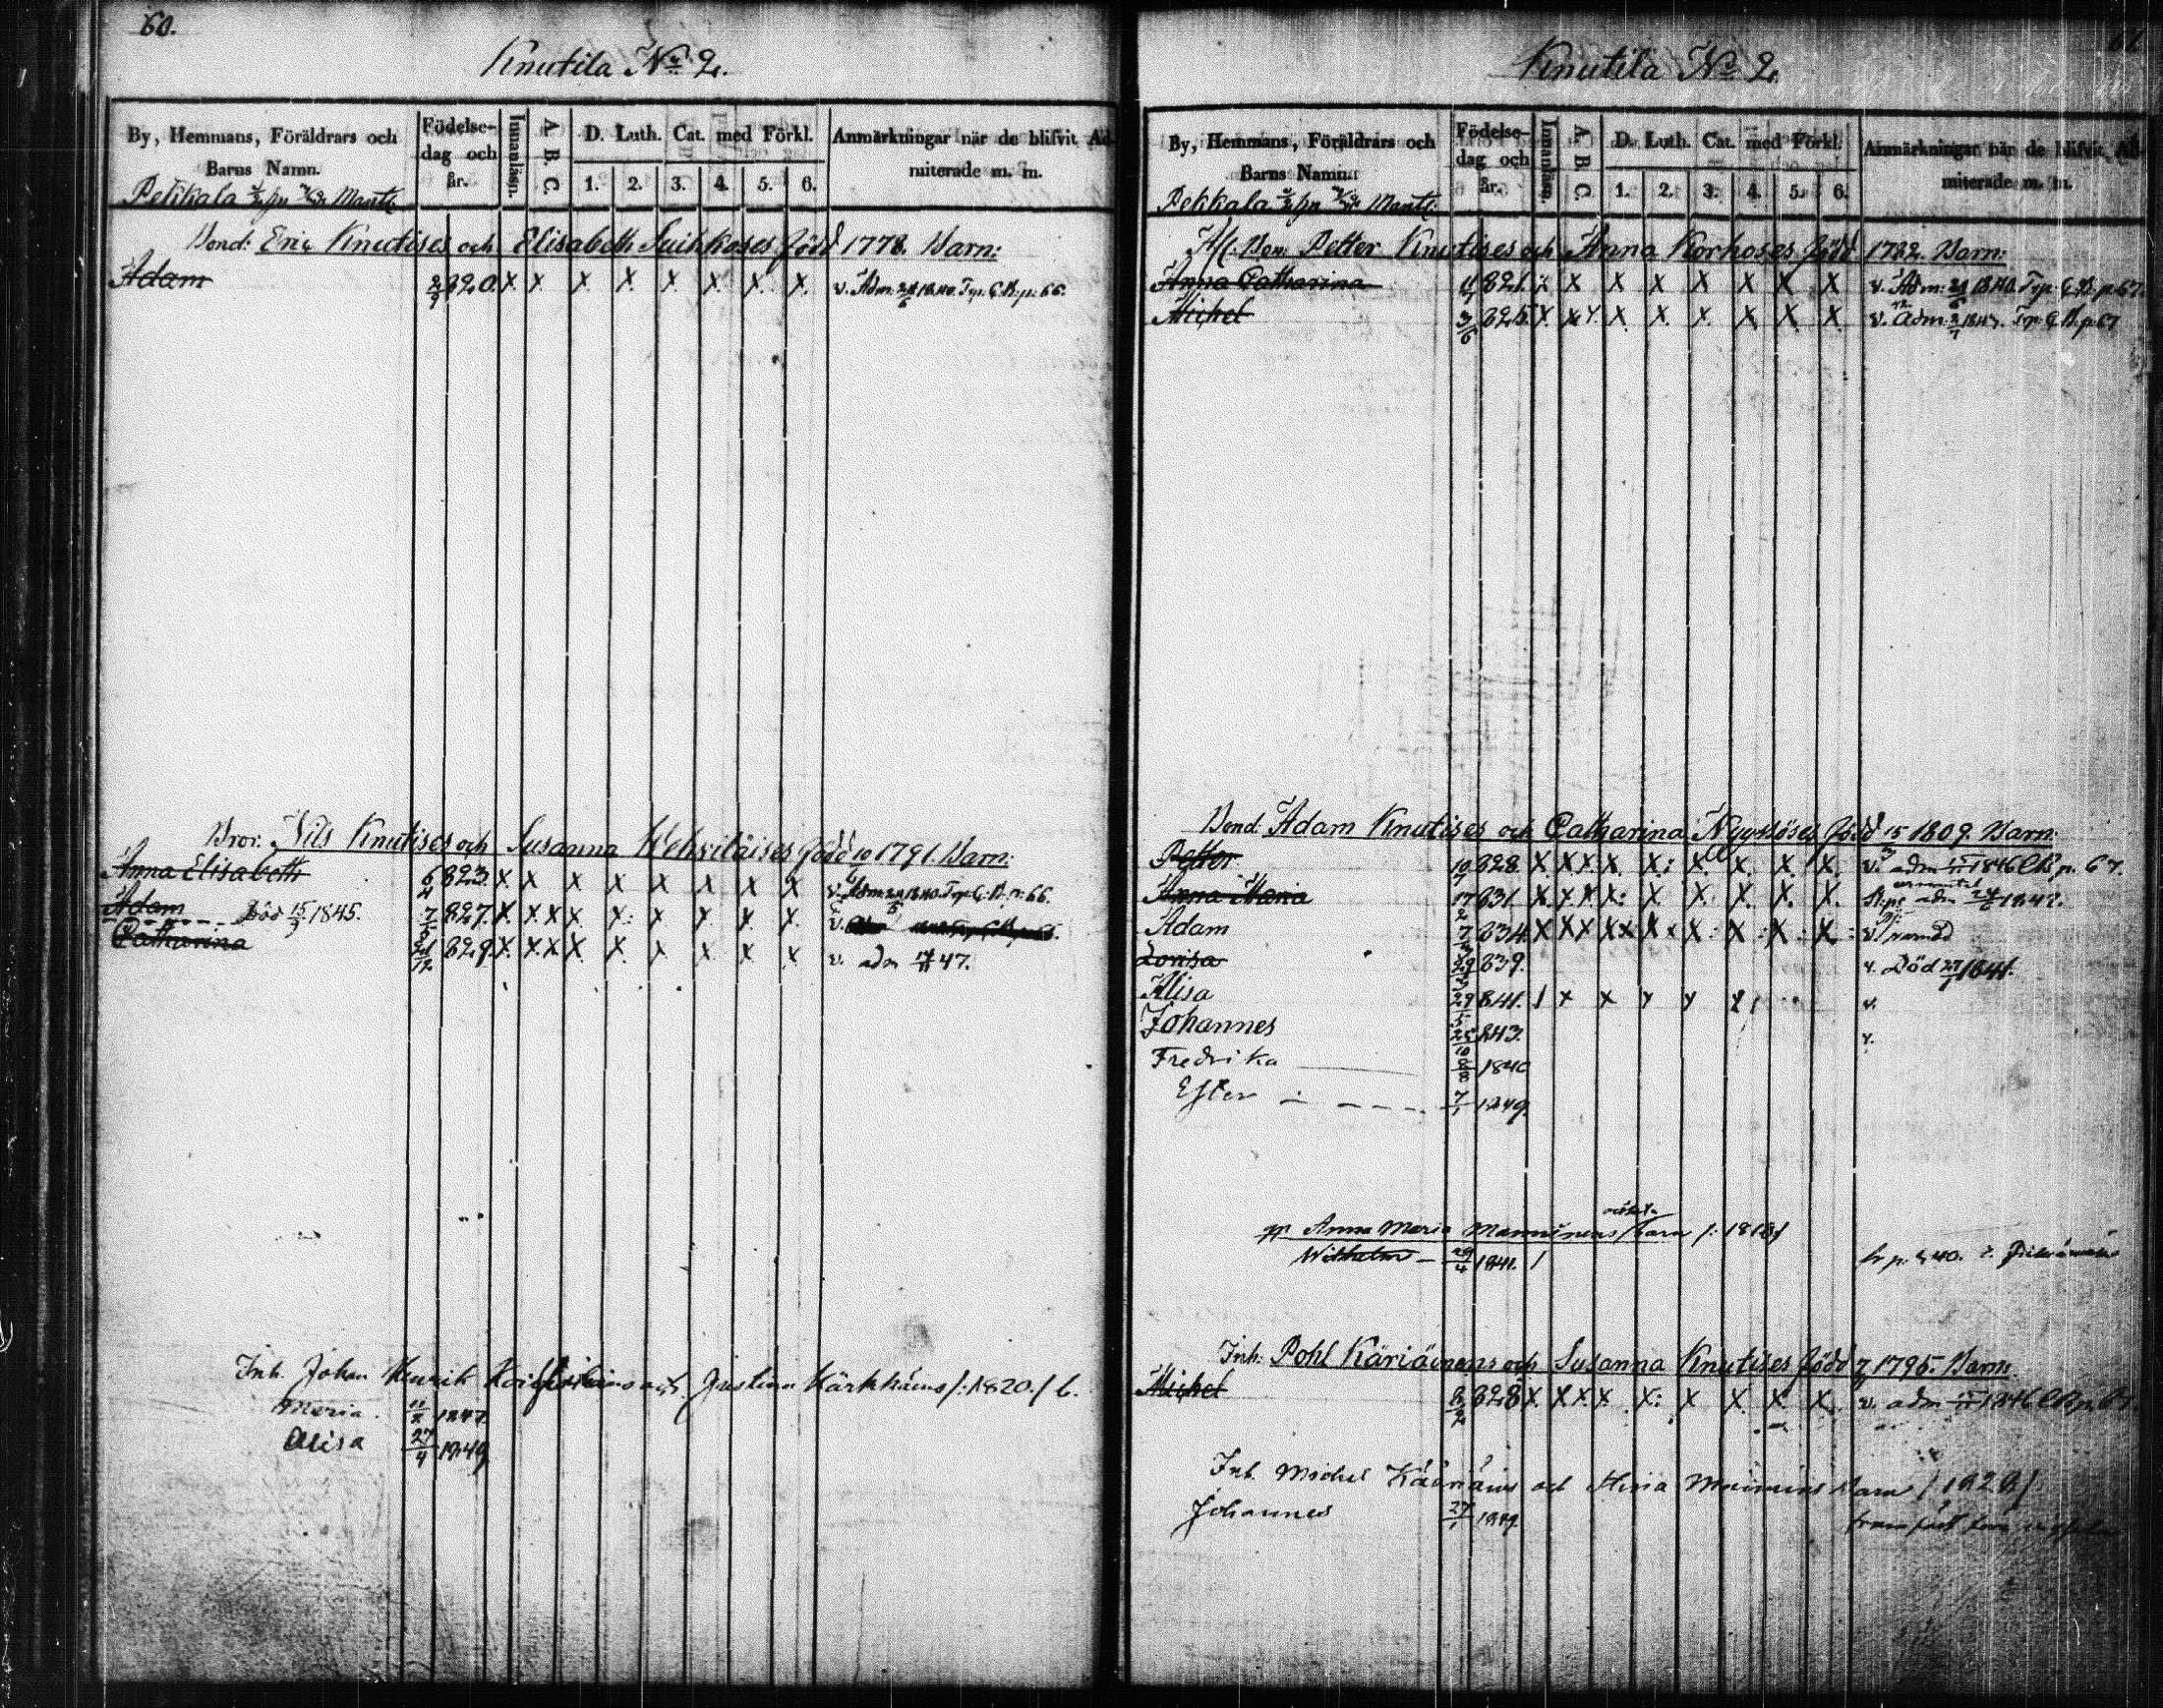 60.
Knutila No 2.
By, Hemmans, Föräldrars och Barns Namn.
Födelse-dag och år.
Innanläsn.
A. B. C.
D. Luth. Cat. med Förkl.
1. 2. 3. 4. 5. 6.
Anmärkningar när de blifvit Ad miterade m. m.
Pekkala Mantl.
Bond: Eric Knutises och Elisabeth Suihkoses född 1778. Barn:
Adam 2/9 820 X X X X X X X X v. Adm: 1840. C.B. p: 66.
Bror: Nils Knutises och Susanna född 1791. Barn:
Anna Elisabeth 6/4 823. X X X X X X X X v. Adm 1840. C.B. p: 66.
Adam Död 15/3 1845. 7/5 827. X. X. X X X: X X. X. X. v.
Catharina 21/12 829. X. X. X X. X. X X. X. X. v. adm 47.
Inh. Johan Henrik och Justina Kärkkäines /: 1820. /
Maria. 1847.
Alisa 27/4 1849
61.
Knutila No 2.
By, Hemmans, Föräldrars och Barns Namn.
Födelse-dag och år.
Innanläsn.
A. B. C.
D. Luth. Cat. med Förkl.
1. 2. 3. 4. 5. 6.
Anmärkningar när de blifvit Ad miterade m. m.
Pekkala Mantl.
Petter Knutises och Anna Korhoses född 1782. Barn:
Anna Catharina 821. X X X X X X X v. Adm: 1840. C.B. p. 67.
Michel 3/6 825. X. X X. X X. X. X X X v. Adm: 1843. C.B. p. 67
Bond. Adam Knutises och Catharina Nyyssöses född 1809. Barn:
Petter 10/7 828. X. X X. X. X: X X. X. X. v. adm 1846 CB p. 67.
Anna Maria 17/2 831. X. X X X: X X. X. X. adm 1847.
Adam 7 834. X X X X X X X X: X: X: X. v.
Lovisa 29 839. v. Död 1841.
Alisa 29/5 841. / X X X X v.
Johannes 25/10 843. v.
Fredrika 8/8 184
Ester 7/1 1849.
Anna Maria Manninens barn /: 1818 /
Wilhelm 29/4 1841. / p. 240.
Inh. Pohl Käriäinens och Susanna Knutises född 1795. Barn:
Michel 828 X. X X X X: X X. X. X. v. adm 1846 CB p. 67.
Inh. Michel och barn / 1828 /
Johannes 27/1 1849.